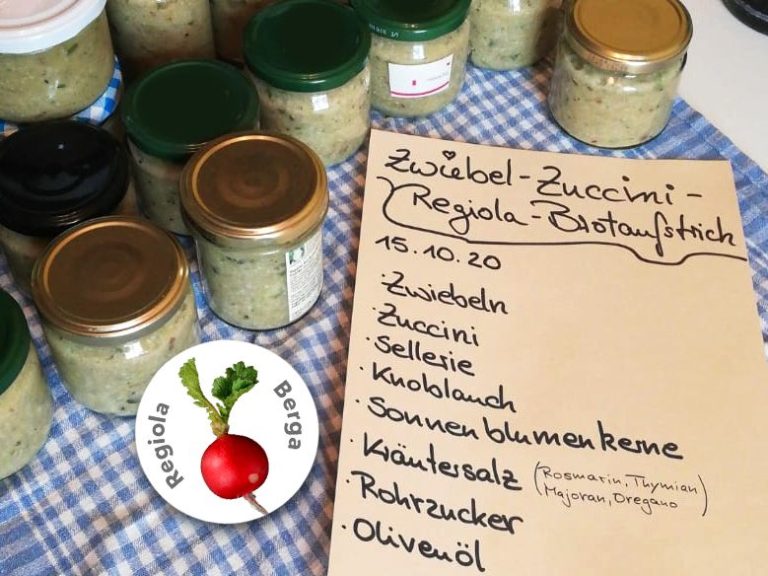 Zwiebel-Zuccini-
Regiola-Brotaufstrich
15.10.20
· Zwiebeln
· Zuccini
· Sellerie
· Knoblauch
· Sonnenblumenkerne
· Kräutersalz (Rosmarin, Thymian
Majoran, Oregano)
· Rohrzucker
· Olivenöl
Regiola
Berga